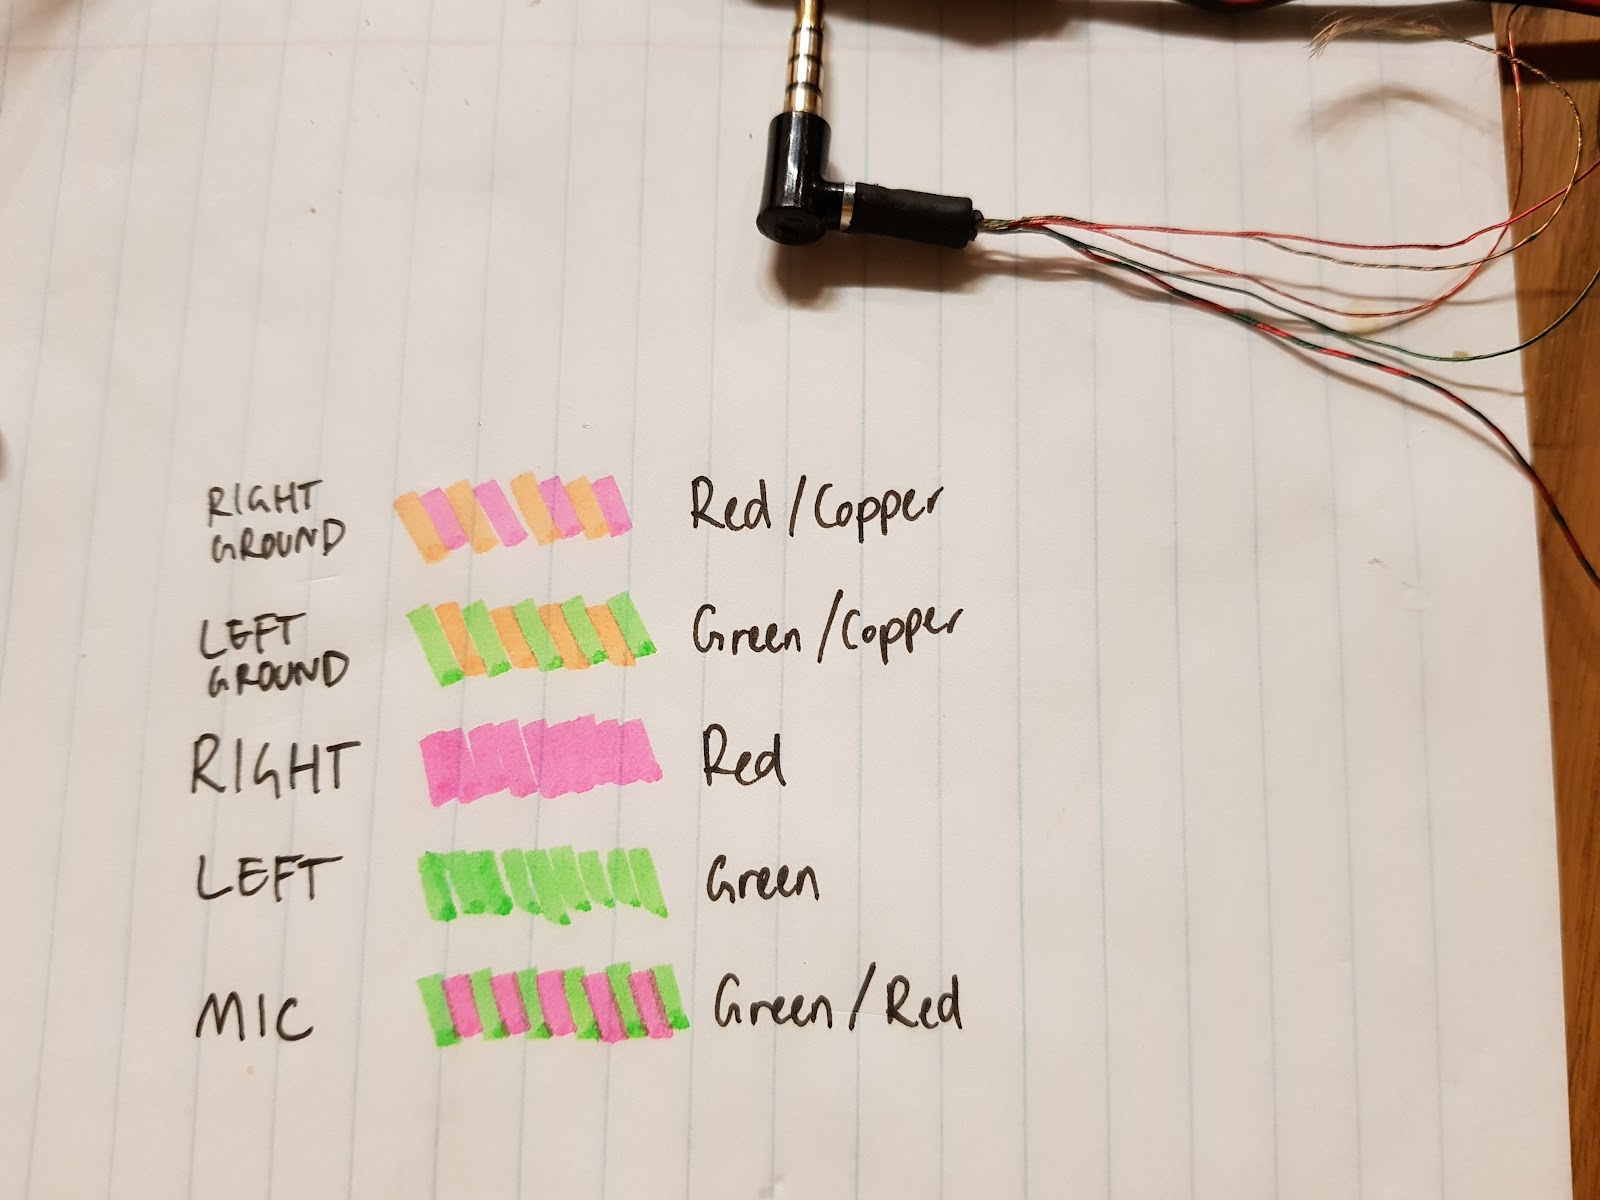 RIGHT
GROUND
Red/Copper
LEFT
GROUND
Green/Copper
RIGHT
Red
LEFT
Green
MIC
Green/Red